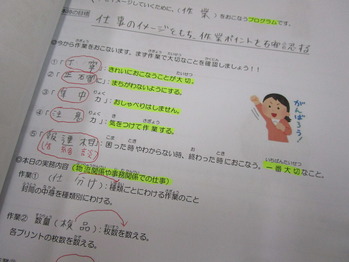 イメージしていくために、(作業)をおこなうプログラムです。
の目標 仕事のイメージをもち、作業ポイントを
◎今から作業をおこないます。まず作業で大切なことを確認しましょう！！
①「丁寧」：きれいにおこなうことが大切。
②「正確に」：まちがわないようにする。
③「集中力」：おしゃべりはしません。
④「注意力」：気をつけて作業する。
⑤「報連相」：困った時やわからない時、終わった時におこなう。一番大切なこと。
がんばろう！
◎本日の実務内容（物流関係や事務関係での仕事）
作業①（仕分け）：種類ごとにわける作業のこと
封筒の中身を種類別にわける。
作業② 数量（検品）：枚数を数える。
各プリントの枚数を数える。